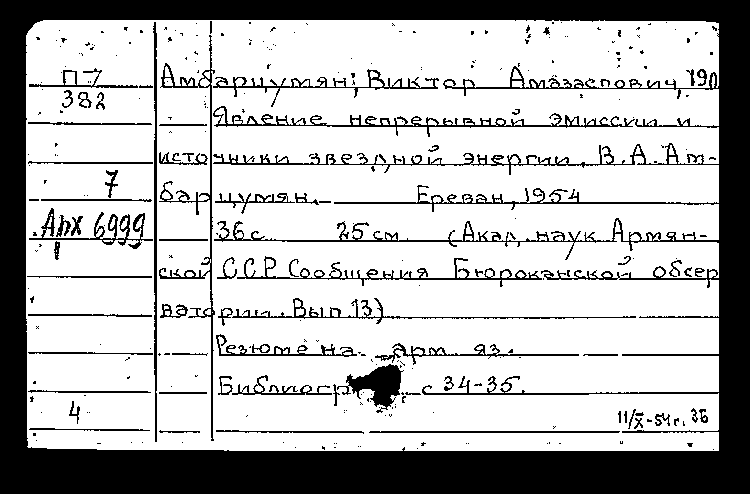 П-7
382
Амбарцумян, Виктор Амазаспович, 190
Явление непрерывной эмиссии и
источники звездной энергии. В.А. Ам-
7
барцумян. Ереван, 1954
Арх 6999
36 с 25 см (Акад. наук Армян-
ской ССР. Сообщения Бюроканской обсер
ватории. Вып. 13)
Резюме на арм яз.
с 34-35.
4
11/X-54г. 35